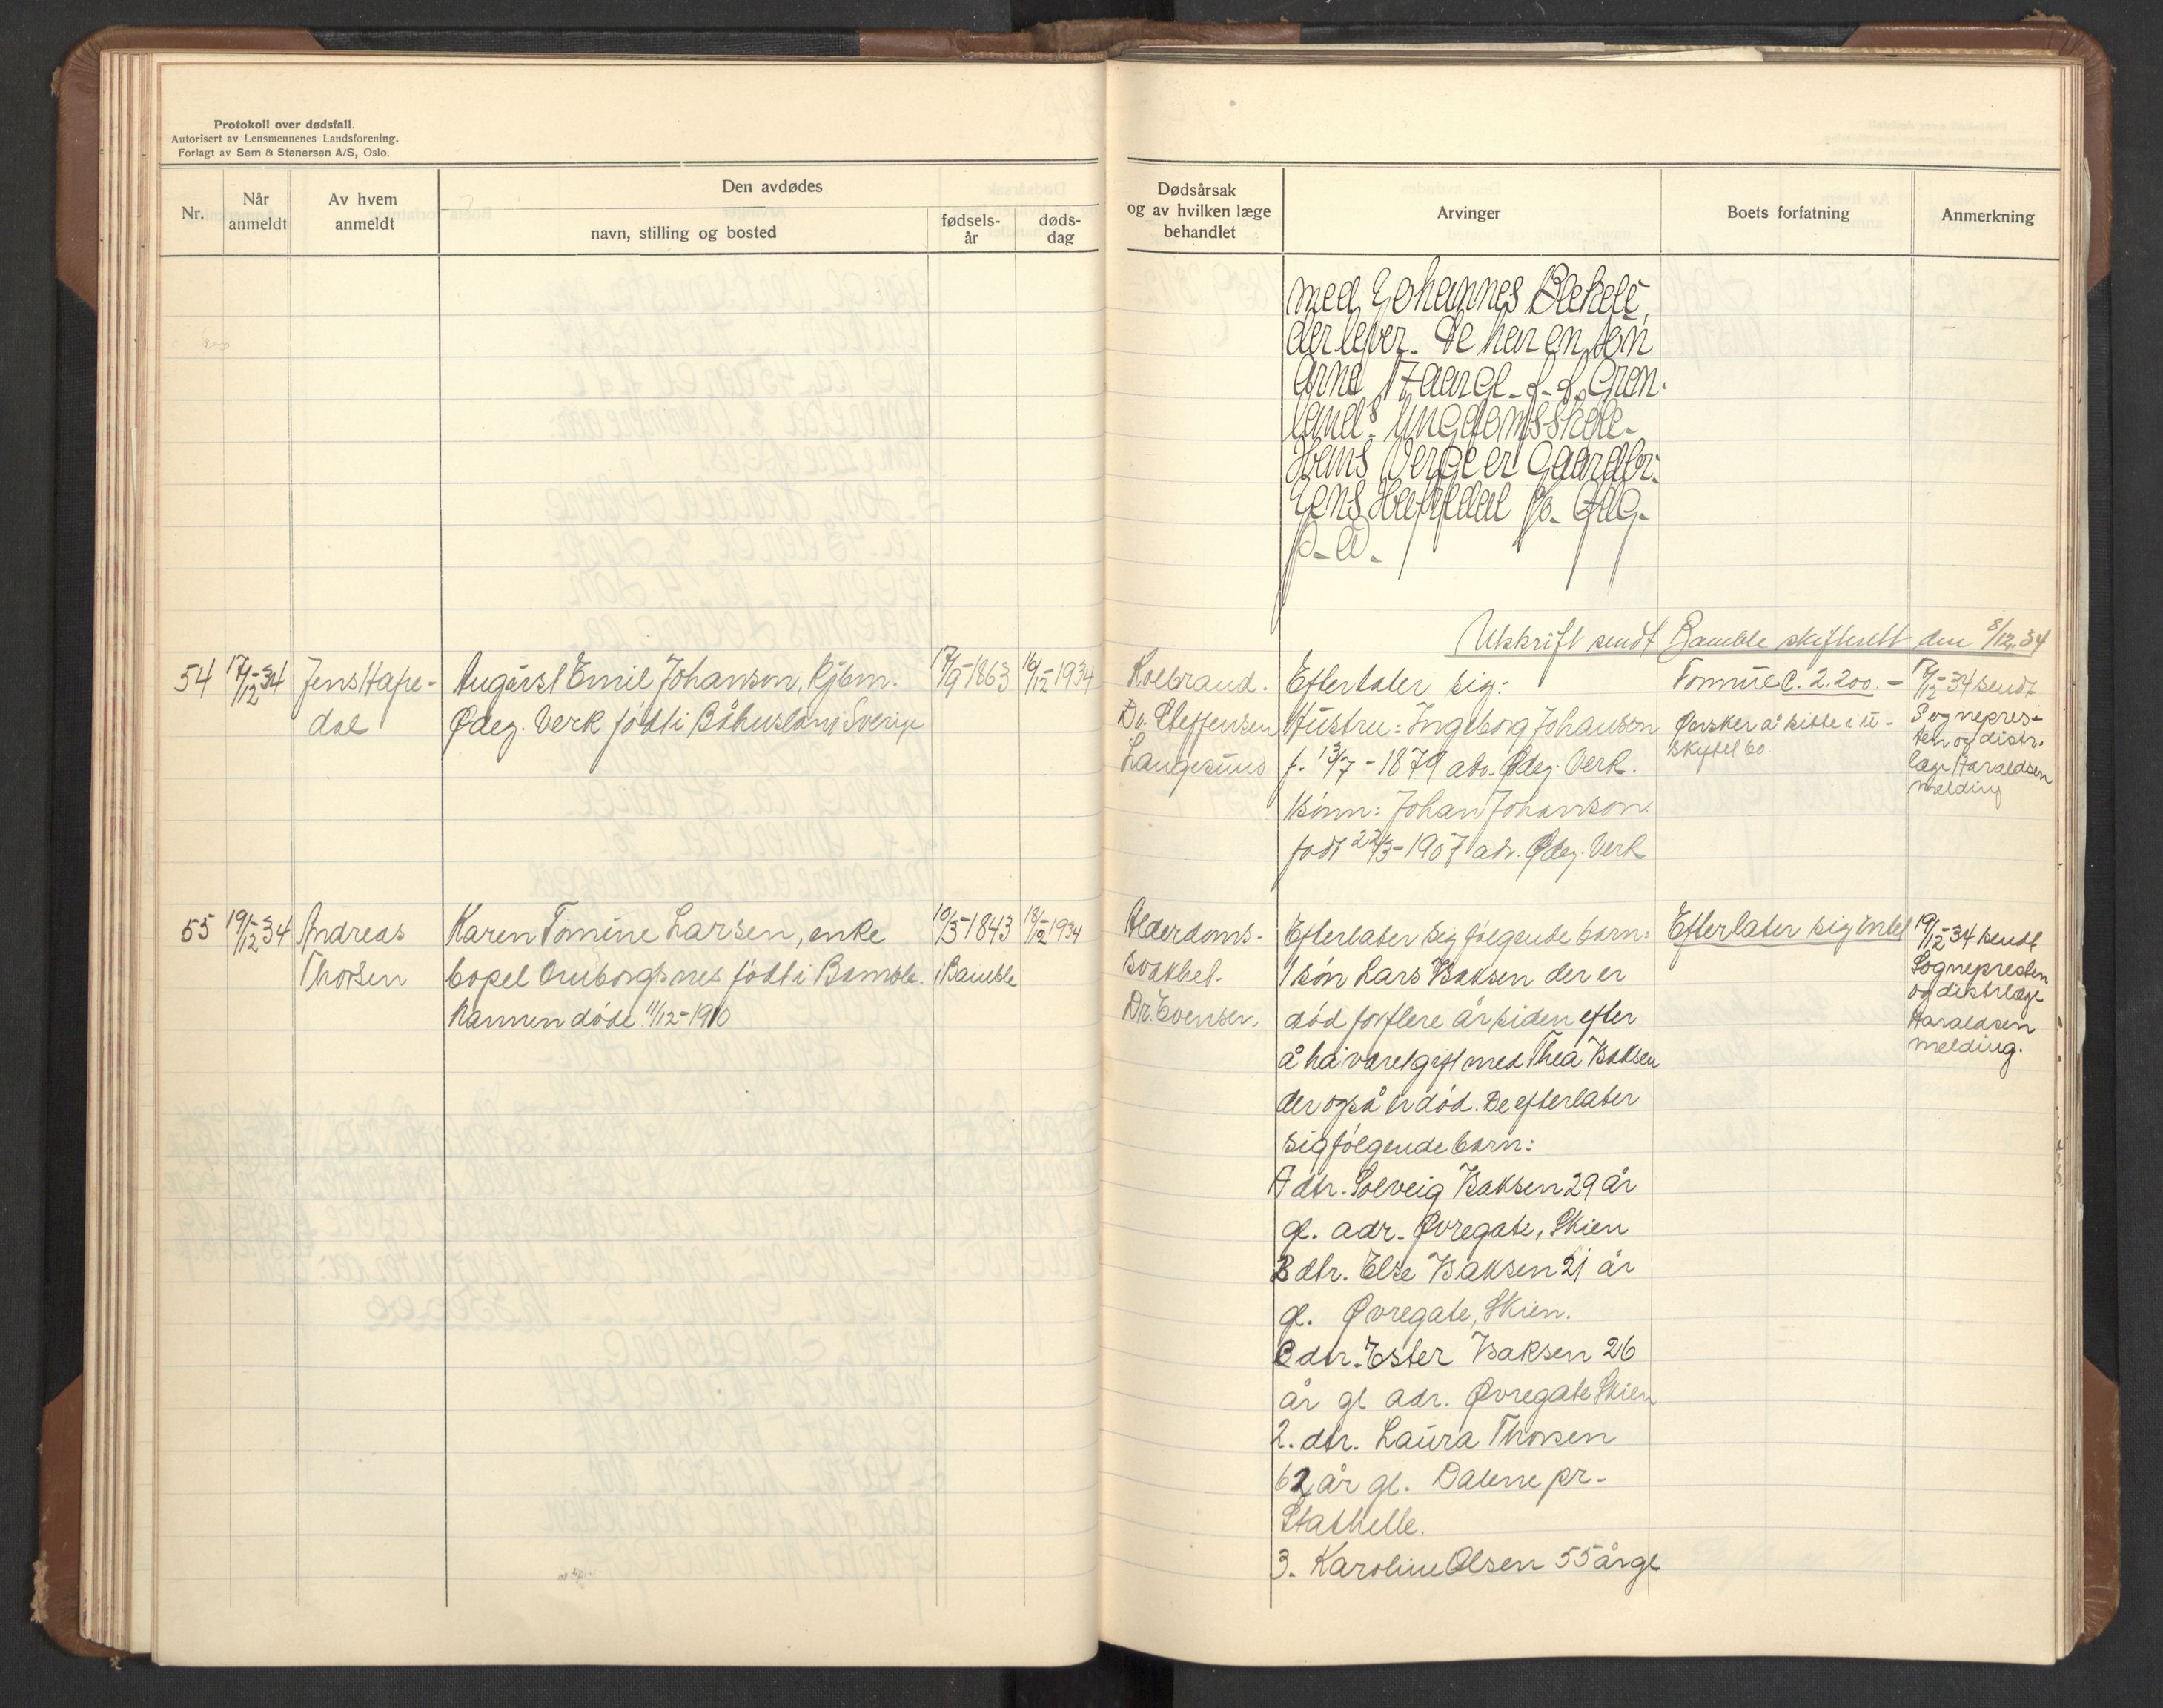 Protokoll over dødsfall.
Autorisert av Lensmennenes Landsforening.
Forlagt av Sem & Stenersen A/S, Oslo.
Nr.
Når
anmeldt
Av hvem
anmeldt
Den avdødes
navn, stilling og bosted
fødsels-
år
døds-
dag
Dødsårsak
og av hvilken læge
behandlet
Arvinger
Boets forfatning
Anmerkning
med Johannes
der lever. De har en sön
Arne 17 aar gl. Gren-
lands Ungdomsskole.
Hans Verge er Gaardbr.
Jens
p. a.
Utskrift sendt Bamble skifterett den 8/12.34
54
17/12-34
Jens Hafre-
dal
August Emil Johanson, Kjbm.
Ødeg. Verk født i Båhuslän i Sverige
17/9-1863
16/12-1934
Kolbrand.
Dr. Steffensen
Langesund
Efterlater sig:
Hustru: Ingeborg Johanson
f. 13/7-1879 adr. Ødeg. Verk.
1 sönn: Johan Johanson
født 22/3-1907 adr. Ødeg. Verk
Formue C. 2.200.-
Ønsker å sitte i u-
skiftet bo
17/12-34 sendt
Sognepres-
ten og distr.
læge Haraldsen
melding
55
19/12-34
Andreas
Thorsen
Karen Tomine Larsen, enke
bopel Omborgsnes født i Bamble.
Mannen døde 11/12-1910
10/3-1843
i Bamble
18/12-1934
Alderdoms-
svakhet.
Dr. Evensen.
Efterlater sig følgende barn:
1 sön Lars Isaksen der er
død for flere år siden efter
å ha været gift med Thea Isaksen
der også er död. De efterlater
sig følgende barn:
A dtr. Solveig Isaksen 29 år
gl. adr. Øvregate, Skien
B dtr. Else Isaksen 21 år
gl. Øvregate, Skien.
C dtr. Ester Isaksen 26
år gl adr. Øvregate Skien
2. dtr. Laura Thorsen
62 år gl. Dalene pr.
Stathelle.
3. Karoline Olsen 55 år gl
Efterlater sig intet
19/12-34 sendt
Sognepresten
og distr læge
Haraldsen
melding.